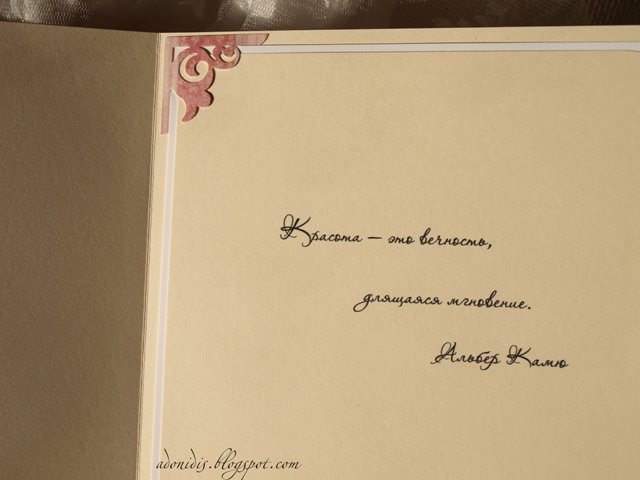 Красота — это вечность,
длящаяся мгновение.
Альбер Камю
adonidis.blogspot.com